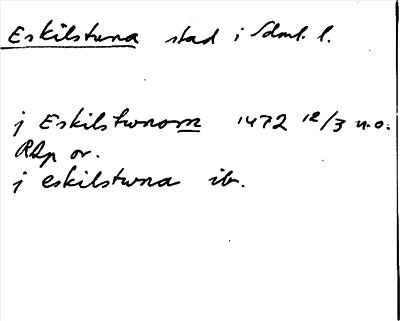 Eskilstuna stad i Sdml. l.
j Eskilstwnom 1472 12/3 u.o.
RAp or.
j eskilstwna ib.